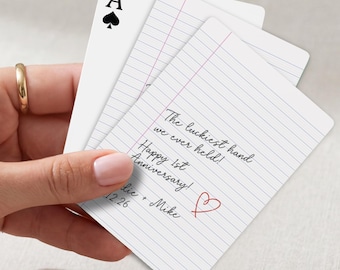 A
The luckiest hand
we ever held!
Happy 1st
Anniversary!
+ Mike